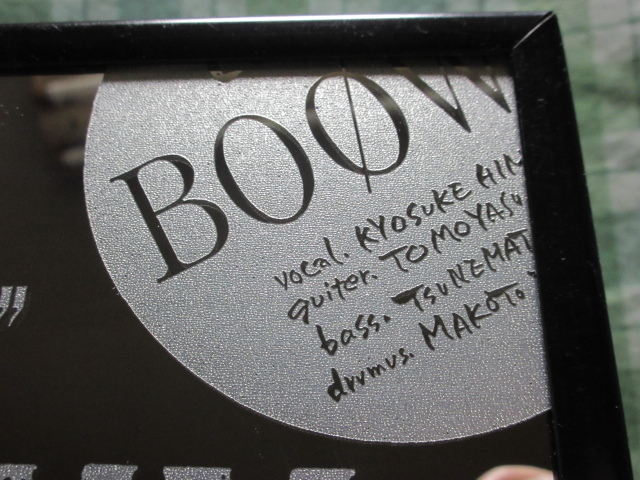 BOØW
vocal. KYOSUKE HIM
guiter. TOMOYASU
bass. TSUNEMAT
drvmvs. MAKOTO
"